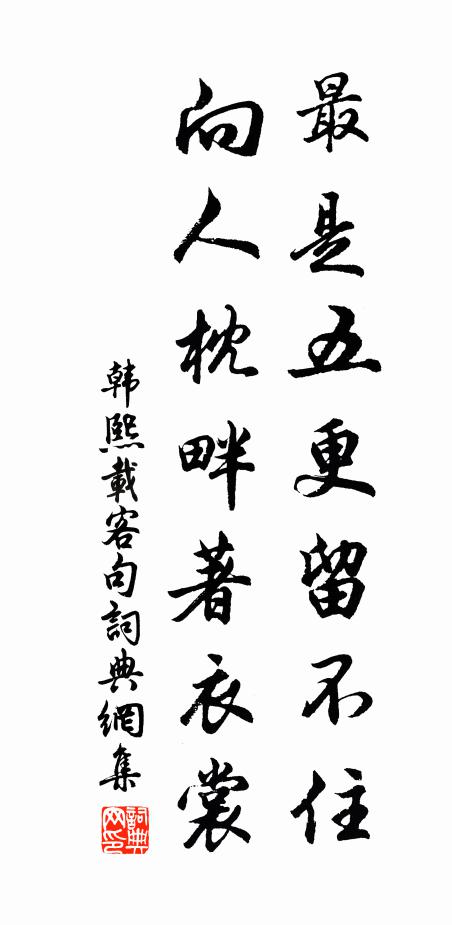 最是五更留不住
向人枕畔著衣裳
韩熙載客句詞典網集
詞典网印